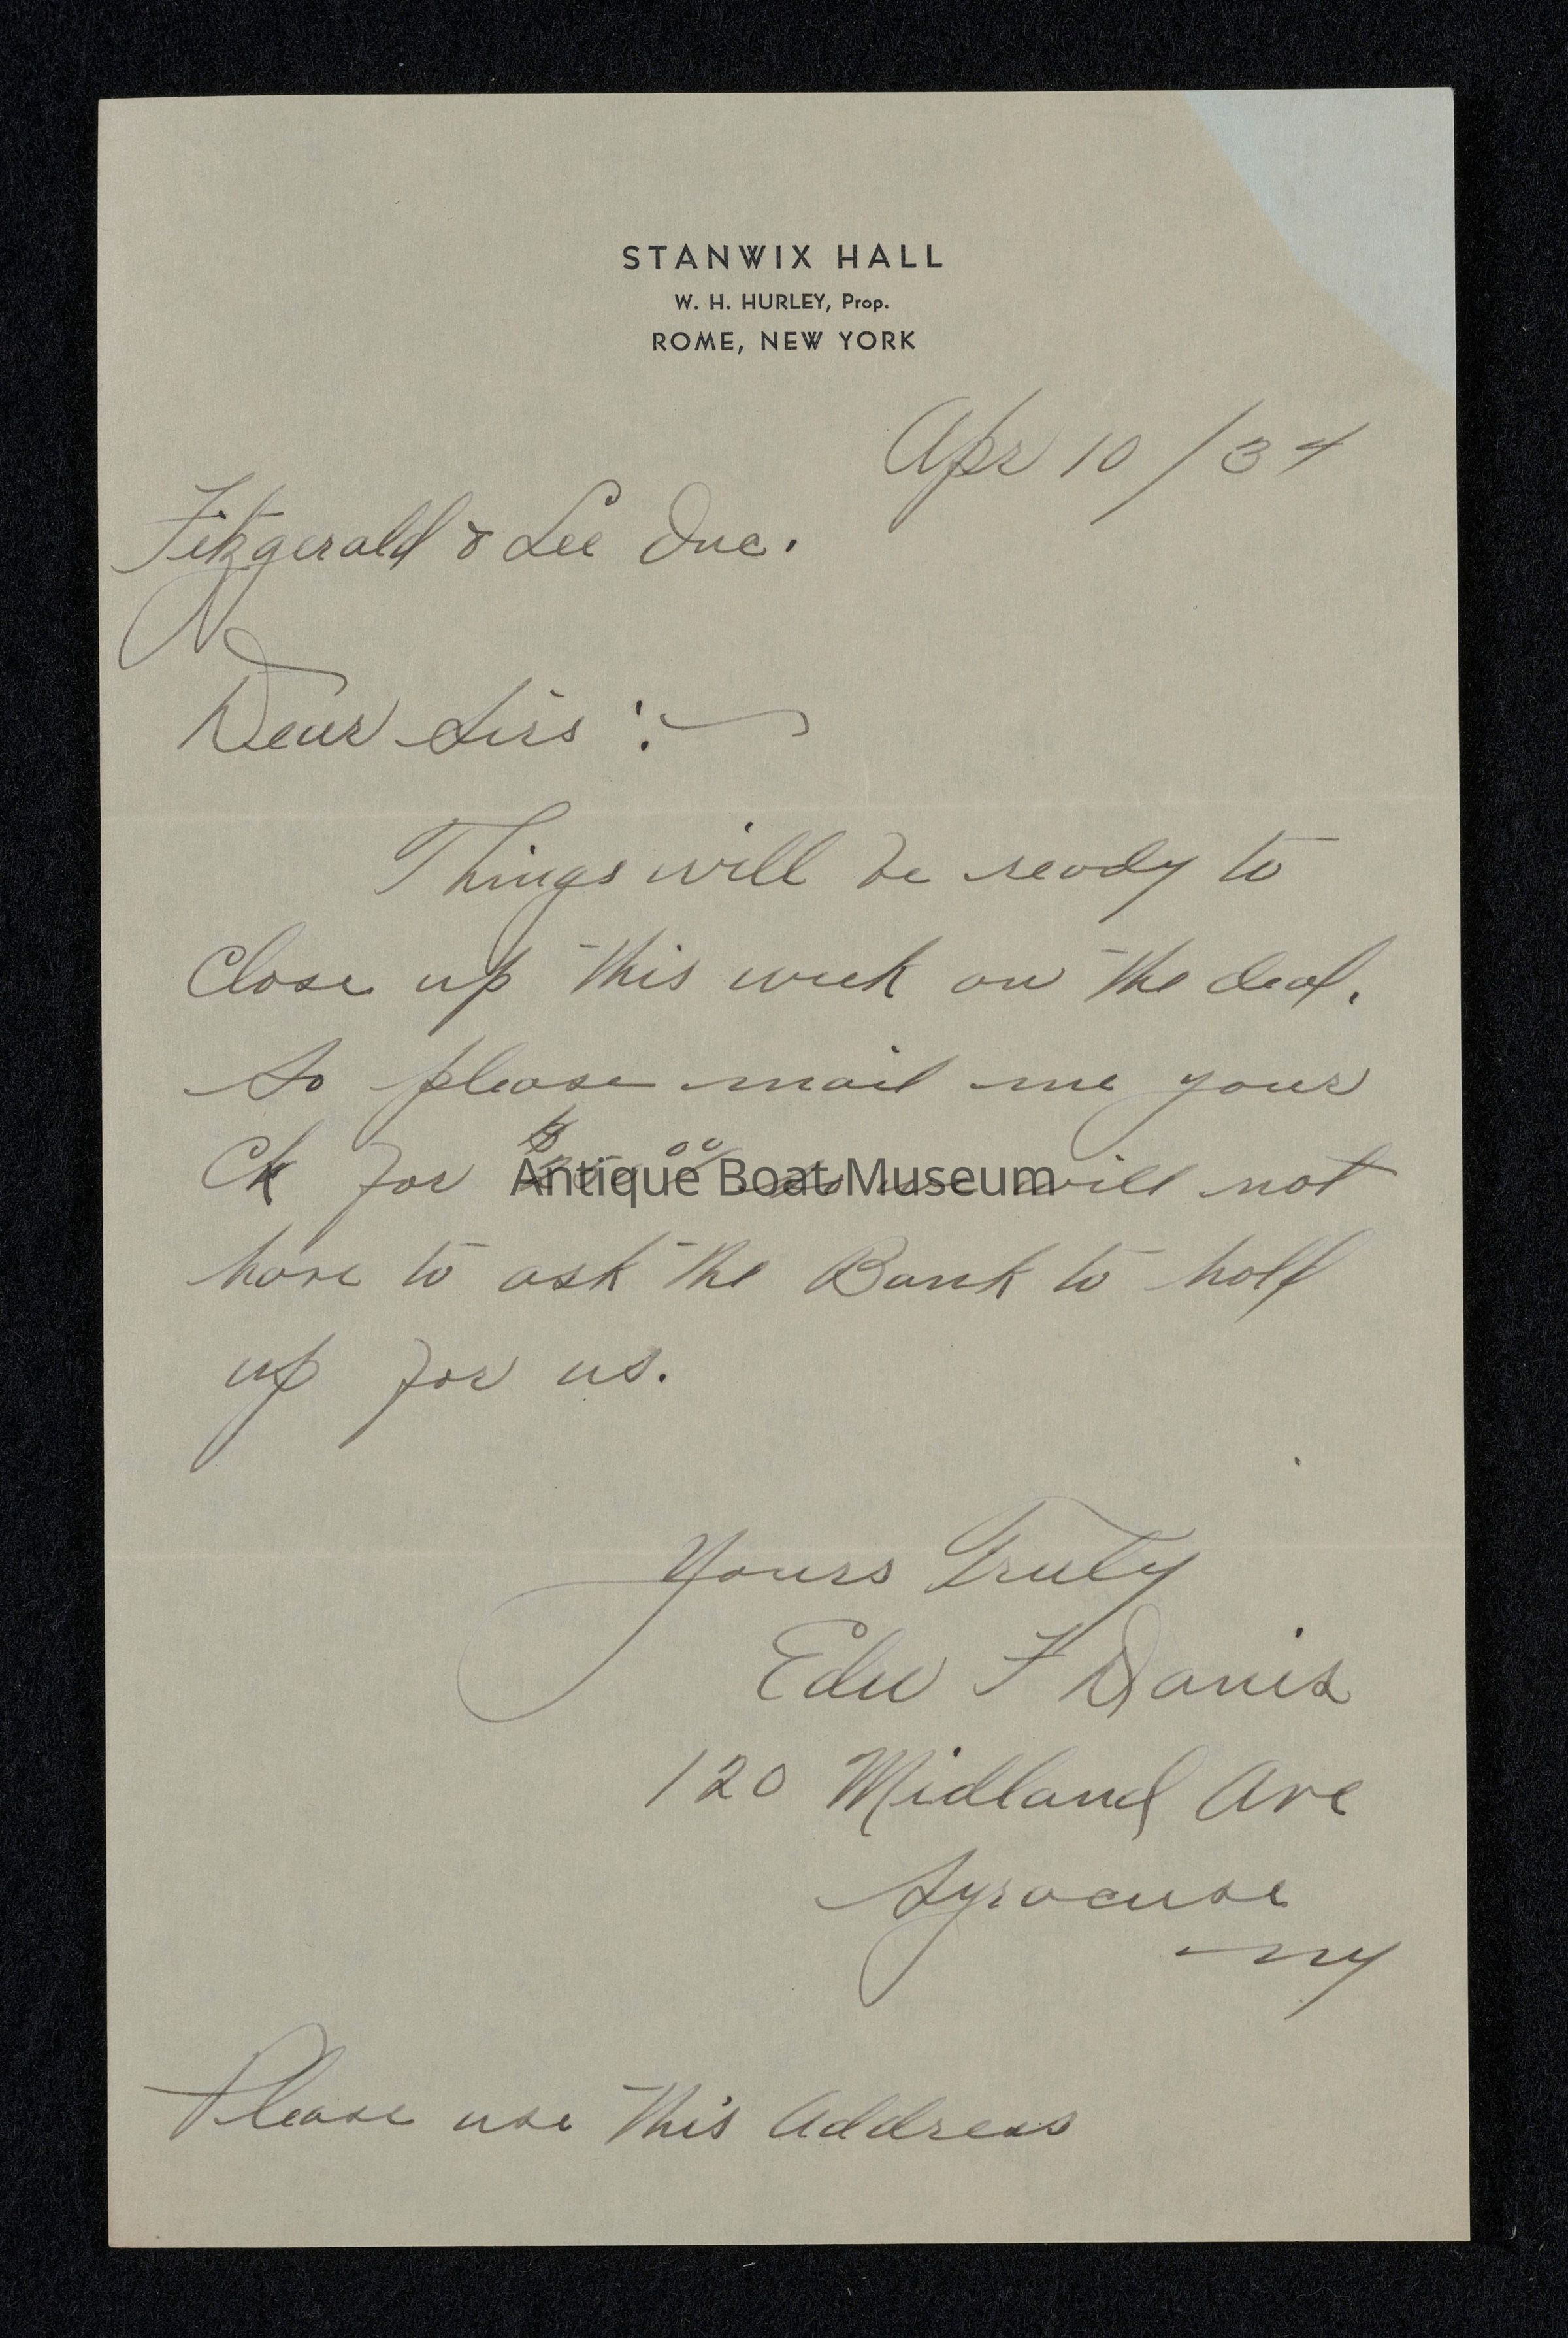 STANWIX HALL
W. H. HURLEY, Prop.
ROME, NEW YORK
Apr 10/34
Fitzgerald & Lee Inc.
Dear Sirs :
Things will be ready to
Close up this week on the deal.
So please mail me your
Ck for so we will not
Antique Boat Museum
have to ask the Bank to hold
up for us.
Yours Truly
Edw F Davis
120 Midland Ave
Syracuse
NY
Please use this address